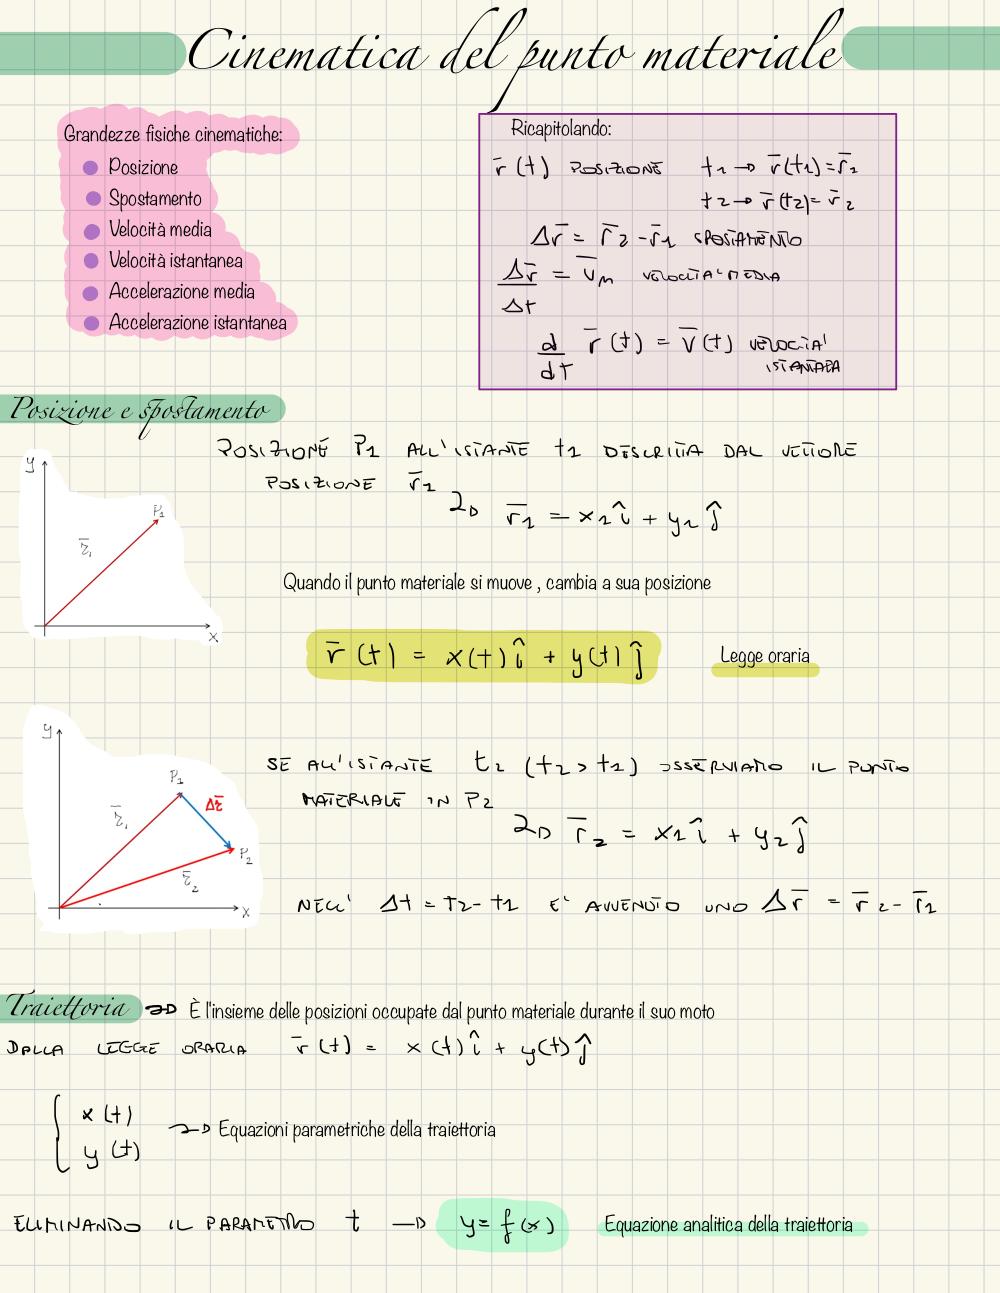 Cinematica del punto materiale
Grandezze fisiche cinematiche:
Posizione
Spostamento
Velocità media
Velocità istantanea
Accelerazione media
Accelerazione istantanea
Ricapitolando:
r̄(t) POSIZIONE t1 → r̄(t1) = r̄1
t2 → r̄(t2) = r̄2
Δr̄ = r̄2 - r̄1 SPOSTAMENTO
Δr̄/Δt = v̄M VELOCITA' MEDIA
d/dt r̄(t) = v̄(t) VELOCITA'
Posizione e spostamento
POSIZIONE P1 ALL'ISTANTE t1 DESCRITTA DAL VETTORE
POSIZIONE r̄1
2D r̄1 = x1 î + y1 ĵ
y
P1
r̄1
x
Quando il punto materiale si muove , cambia a sua posizione
r̄(t) = x(t) î + y(t) ĵ Legge oraria
y
P1
Δr̄
r̄1
P2
r̄2
x
SE ALL'ISTANTE t2 (t2 > t1) OSSERVIAMO IL PUNTO
MATERIALE IN P2
2D r̄2 = x2 î + y2 ĵ
NELL' Δt = t2 - t1 E' AVVENUTO UNO Δr̄ = r̄2 - r̄1
Traiettoria → È l'insieme delle posizioni occupate dal punto materiale durante il suo moto
DALLA LEGGE ORARIA r̄(t) = x(t) î + y(t) ĵ
x(t)
y(t)
→ Equazioni parametriche della traiettoria
ELIMINANDO IL PARAMETRO t → y = f(x) Equazione analitica della traiettoria